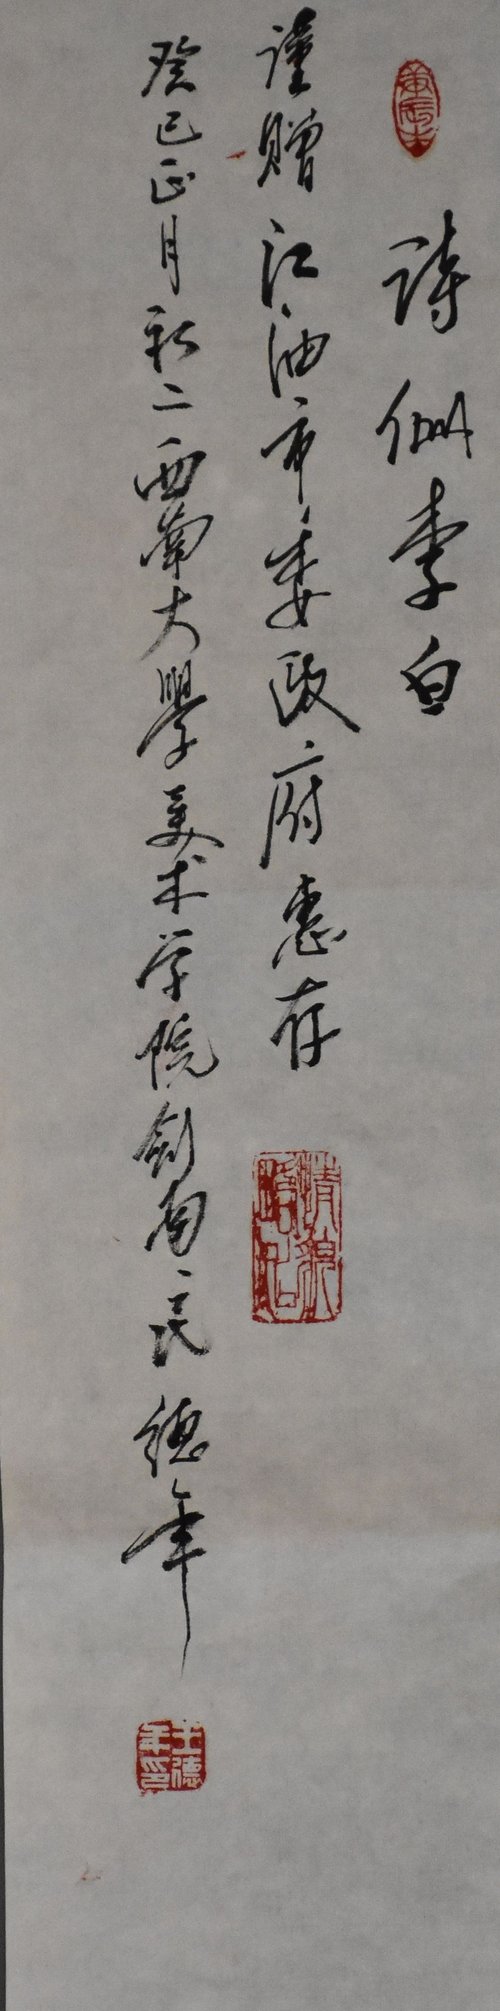 詩仙李白
謹贈江油市委政府惠存
癸巳正月初二西南大學美术学院劍南民德年
王德年印